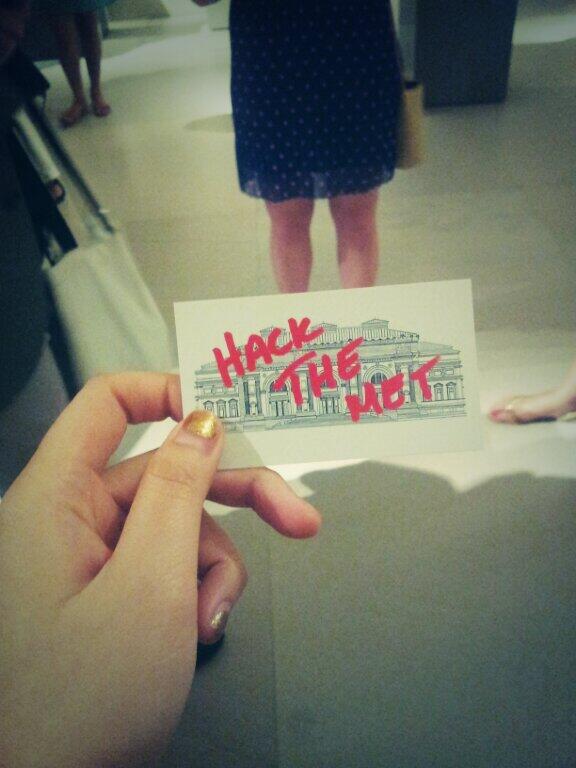 HACK
THE
MET